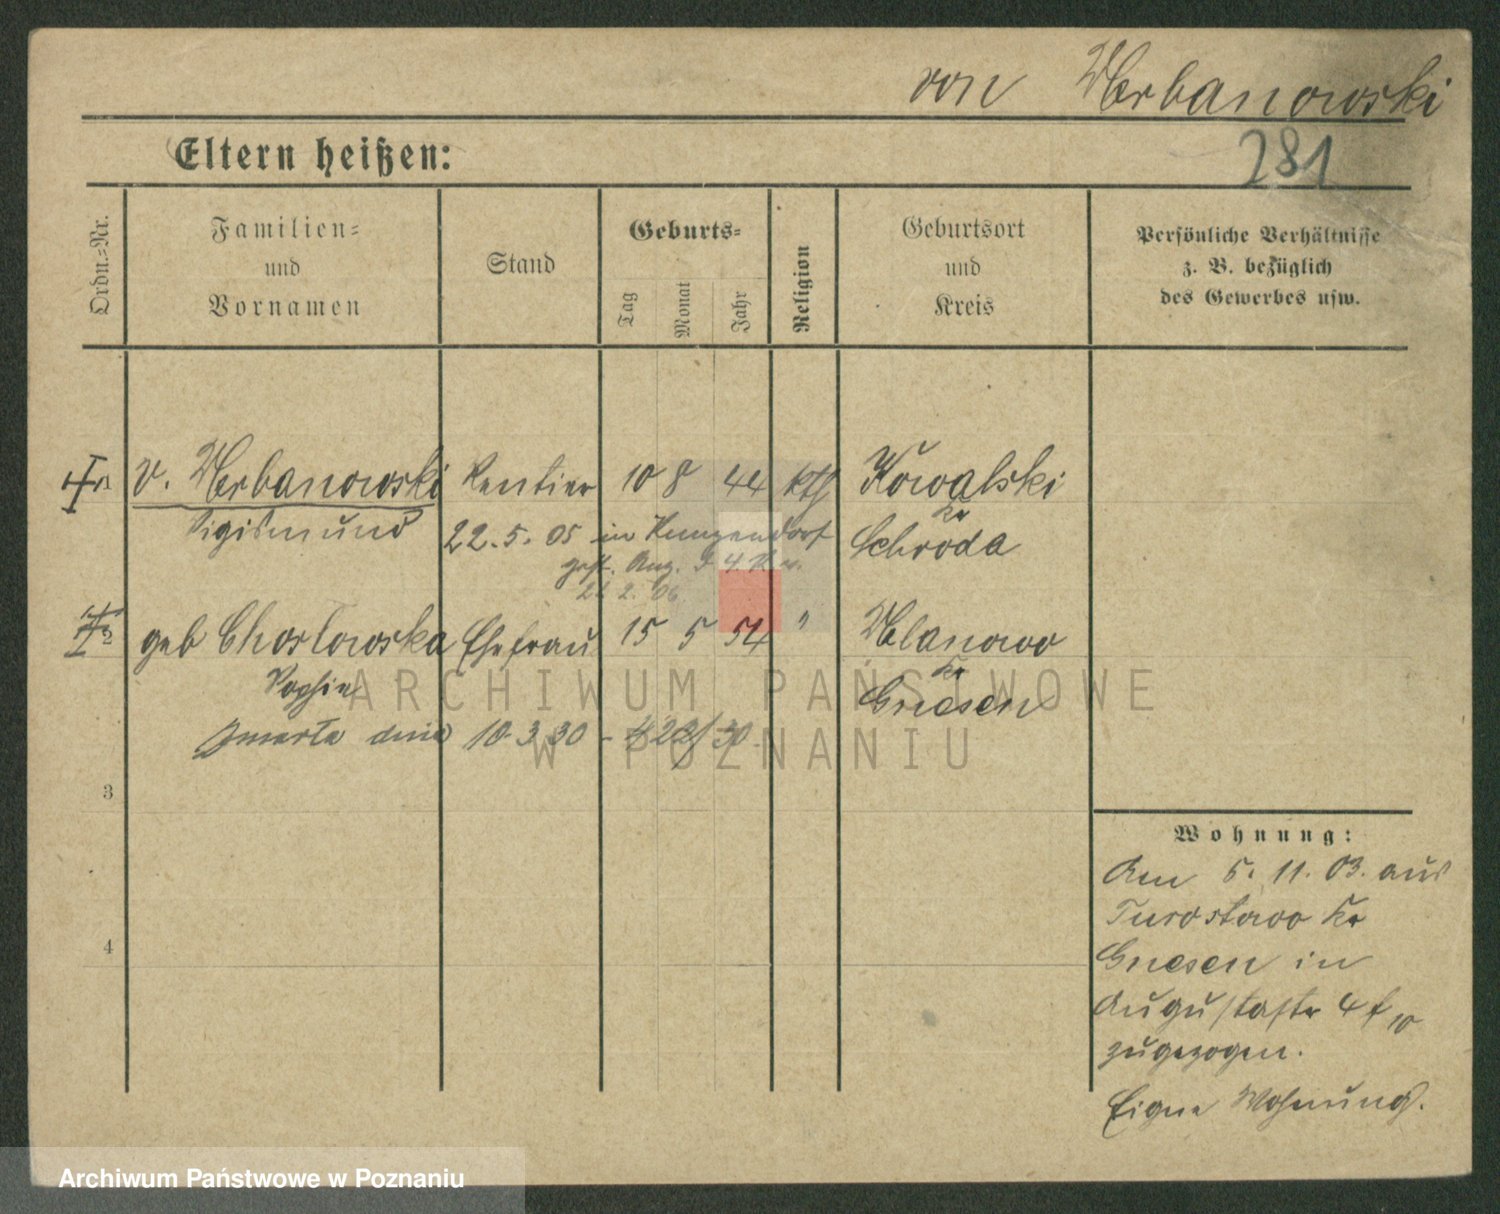 von Urbanowski
281
Eltern heißen:
Ordn.=Nr.
Familien=
und
Vornamen
Stand
Geburts=
Tag
Monat
Jahr
Religion
Geburtsort
und
Kreis
Persönliche Verhältnisse
z. B. bezüglich
des Gewerbes usw.
1 v. Urbanowski Rentier 10 8 44 kth Kowalski
Sigismund
Kr
Schroda
22. 5. 05 in Kunzendorf
gest.
22 2. 06
2 geb Choslowska Ehefrau 15 5 54 " Ulanowo
Sophie
Kr
Gnesen
Zmarła dnia 10.3.30 - 422/30
3
4
Wohnung:
Am 5. 11. 03. aus
Turostowo Kr
Gnesen in
Augustastr 4 f 10
zugezogen.
Eigne Wohnung.
ARCHIWUM PAŃSTWOWE
W POZNANIU
Archiwum Państwowe w Poznaniu